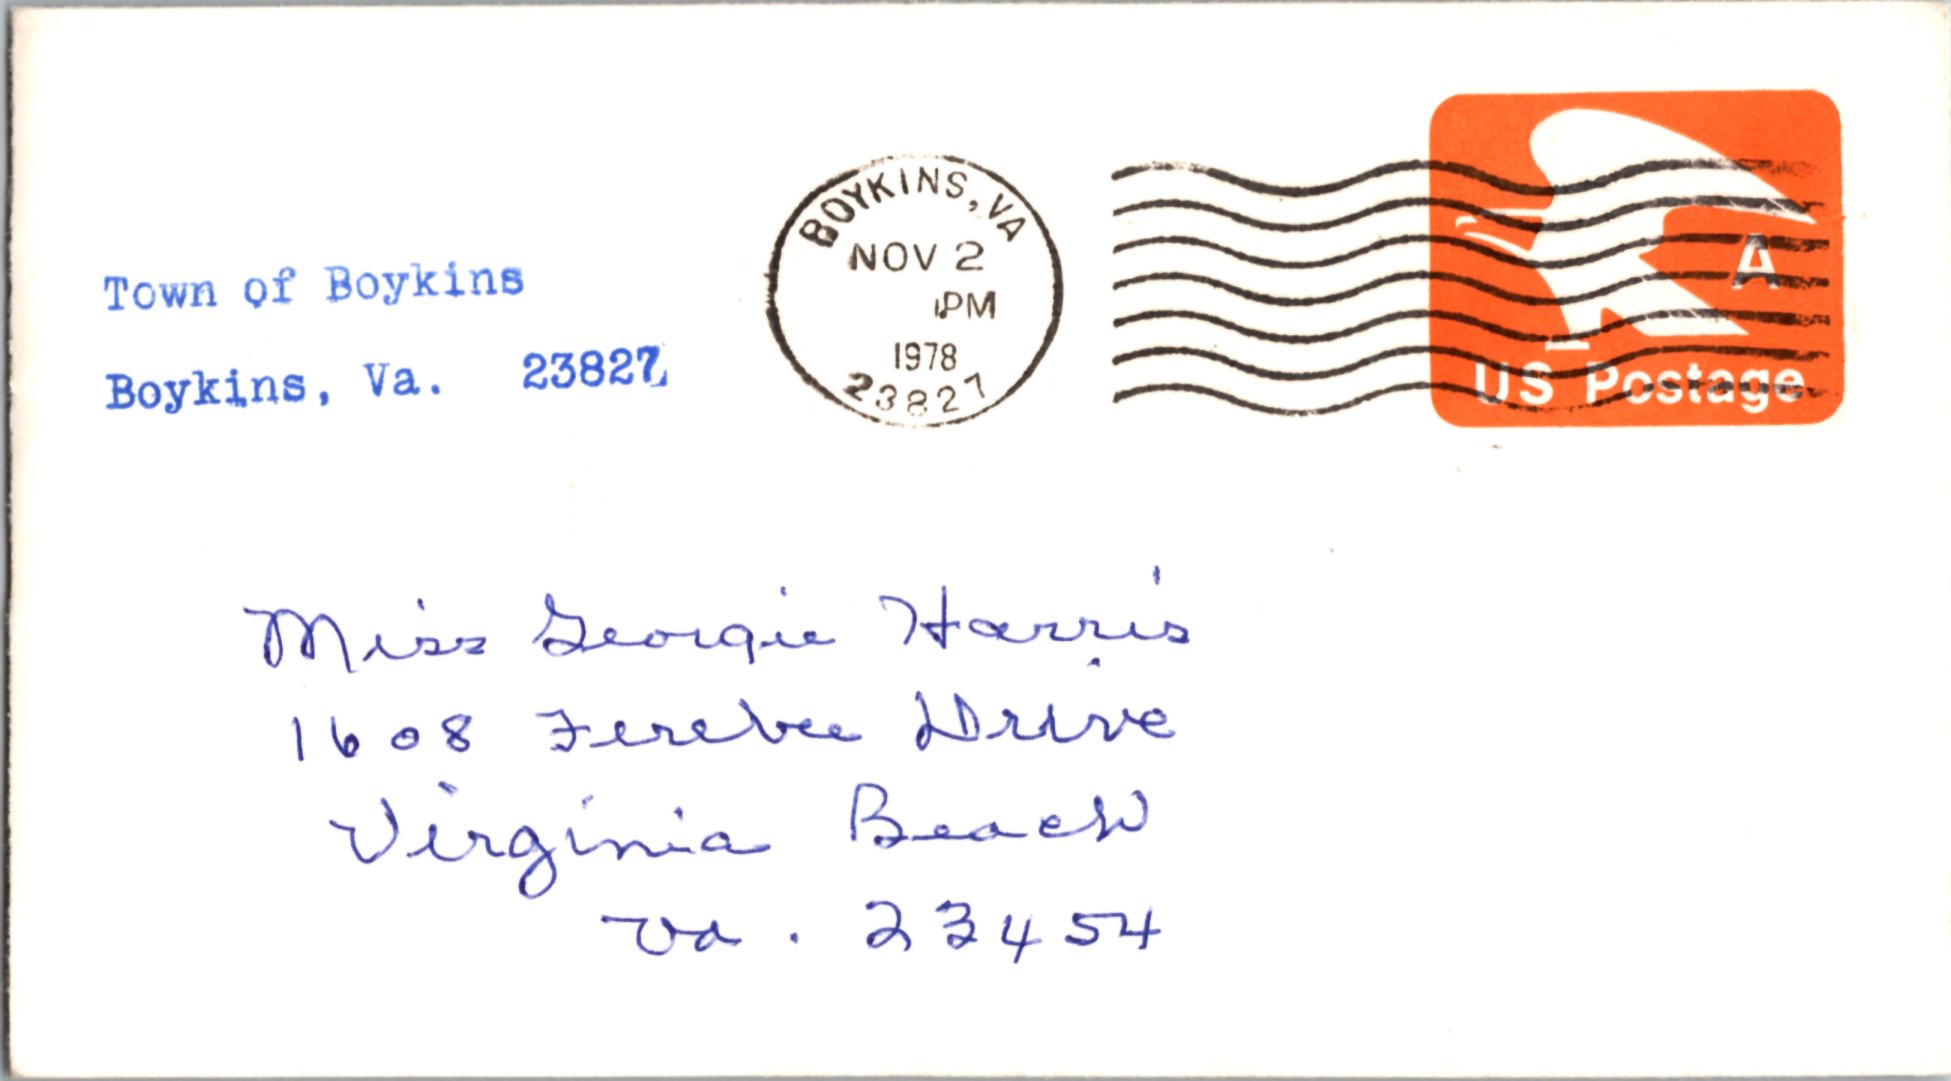 Town of Boykins
Boykins, Va. 23827
BOYKINS, VA
NOV 2
PM
1978
23827
A
US Postage
Miss Georgie Harris
1608 Ferebee Drive
Virginia Beach
Va. 23454